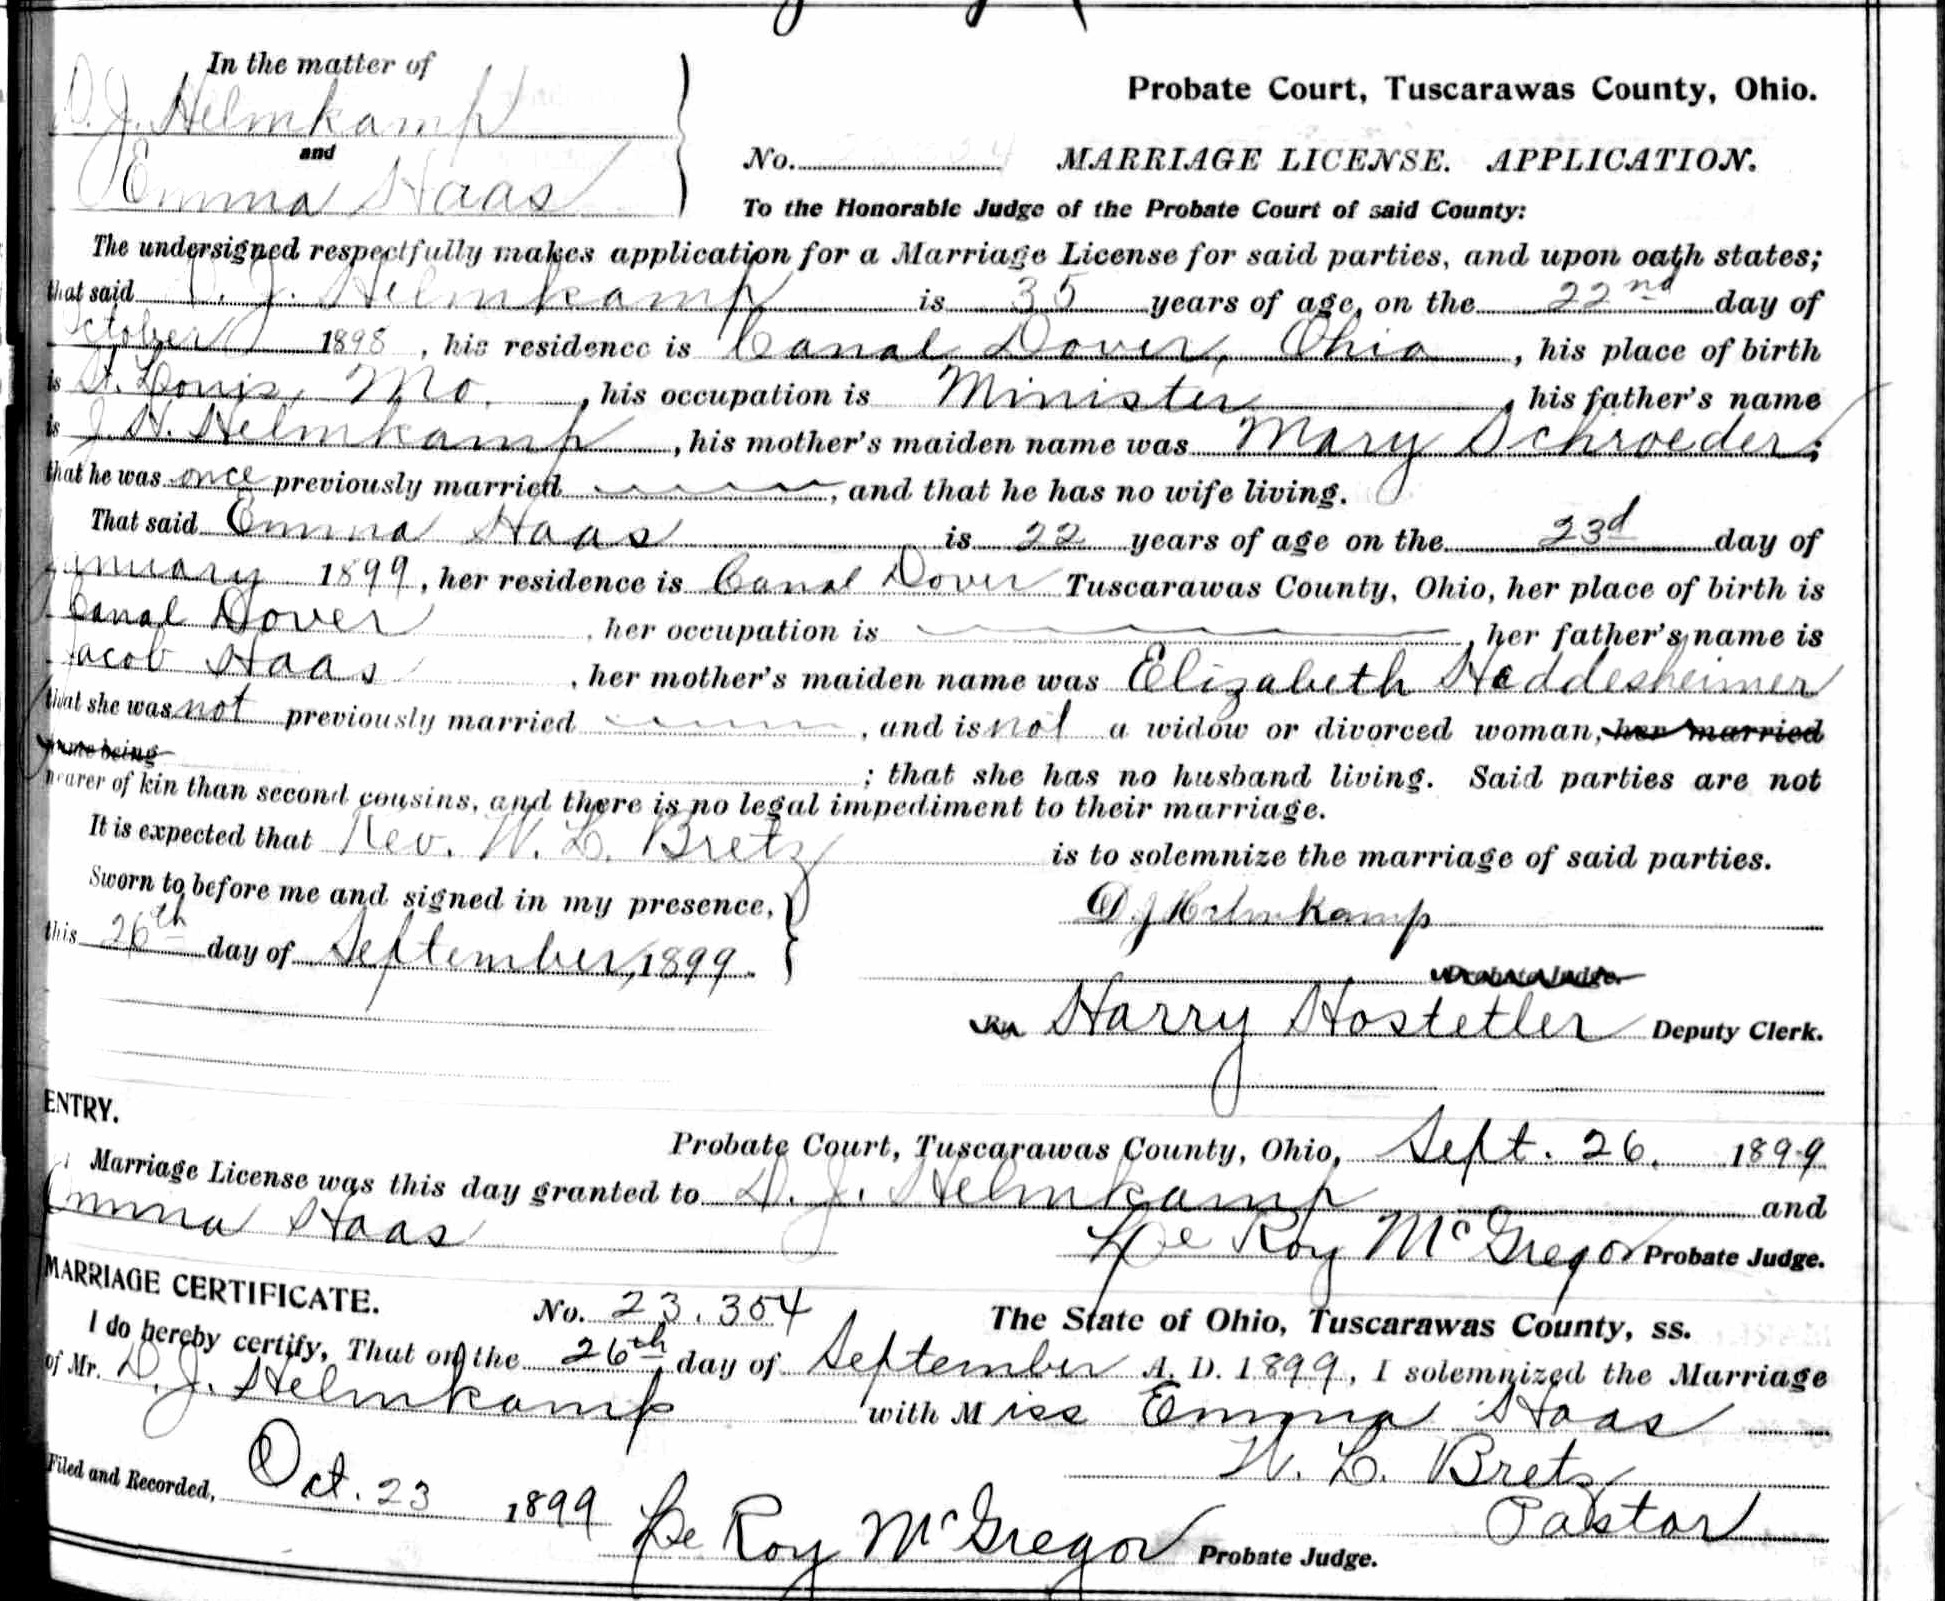 In the matter of
D. J. Helmkamp
and
Emma Haas
Probate Court, Tuscarawas County, Ohio.
No. MARRIAGE LICENSE. APPLICATION.
To the Honorable Judge of the Probate Court of said County:
The undersigned respectfully makes application for a Marriage License for said parties, and upon oath states;
that said D. J. Helmkamp is 35 years of age, on the 22nd day of
October 1898, his residence is Canal Dover, Ohio, his place of birth
is St. Louis, Mo., his occupation is Minister, his father's name
is J. H. Helmkamp, his mother's maiden name was Mary Schroeder;
that he was once previously married, and that he has no wife living.
That said Emma Haas is 22 years of age on the 23d day of
January 1899, her residence is Canal Dover Tuscarawas County, Ohio, her place of birth is
Canal Dover, her occupation is, her father's name is
Jacob Haas, her mother's maiden name was Elizabeth Heddesheimer
that she was not previously married, and is not a widow or divorced woman, her married
name being ; that she has no husband living. Said parties are not
nearer of kin than second cousins, and there is no legal impediment to their marriage.
It is expected that Rev. W. L. Bretz is to solemnize the marriage of said parties.
Sworn to before me and signed in my presence,
this 26th day of September, 1899.
D J Helmkamp
Probate Judge.
By Harry Hostetler Deputy Clerk.
ENTRY.
Probate Court, Tuscarawas County, Ohio, Sept. 26. 1899
Marriage License was this day granted to D. J. Helmkamp and
Emma Haas
De Roy McGregor Probate Judge.
MARRIAGE CERTIFICATE. No. 23.354 The State of Ohio, Tuscarawas County, ss.
I do hereby certify, That on the 26th day of September A. D. 1899, I solemnized the Marriage
of Mr. D. J. Helmkamp with Miss Emma Haas
W. L. Bretz
Pastor
Filed and Recorded, Oct. 23 1899 De Roy McGregor Probate Judge.